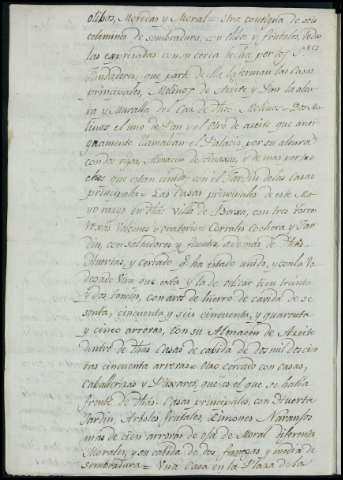 olibos, Moreras y Moral = otra contigua de seis
celemines de sembradura, con olibos y frutales, todas
las expresadas con su cerca hecha por los S.res
fundadores, que parte de ella la forman las Casas
principales, Molinos de Azeite y Pan la altura
y Muralla del Caz de dhos Molinos = Dos Molinos
el uno de Pan y el otro de azeite que antiguamente
llamaban el Palacio por su altura
con dos vigas, Almacen de
que estan unido con el Jardin de las casas
principales = Las Casas principales de este Mayorazgo
en dha Villa de Borox, con tres torreones
y oratorio = Corrales Cochera y Jardin,
con saltadores y fuente, ademas de dhas
Huertas, y cercado, q.e ha estado unido, y con la
de treinta
y dos tinajas, con aros de hierro de cavida de sesenta,
cinquenta y seis cinquenta, y quarenta
y cinco arrovas, con su Almacen de Azeite
dentro de dhas Casas de cabida de dos mil doscientas
cinquenta arrovas = Otro cercado con casas,
Caballerizas y que es el que se halla
frente de dhas Casas principales, con Huerta
Jardin Arboles, frutales, Limones Naranjos
mas de cien arrovas de oja de Moral diferentes
Morales, y su cabida de dos fanegas y media de
sembradura = Una Casa en la Plaza de la